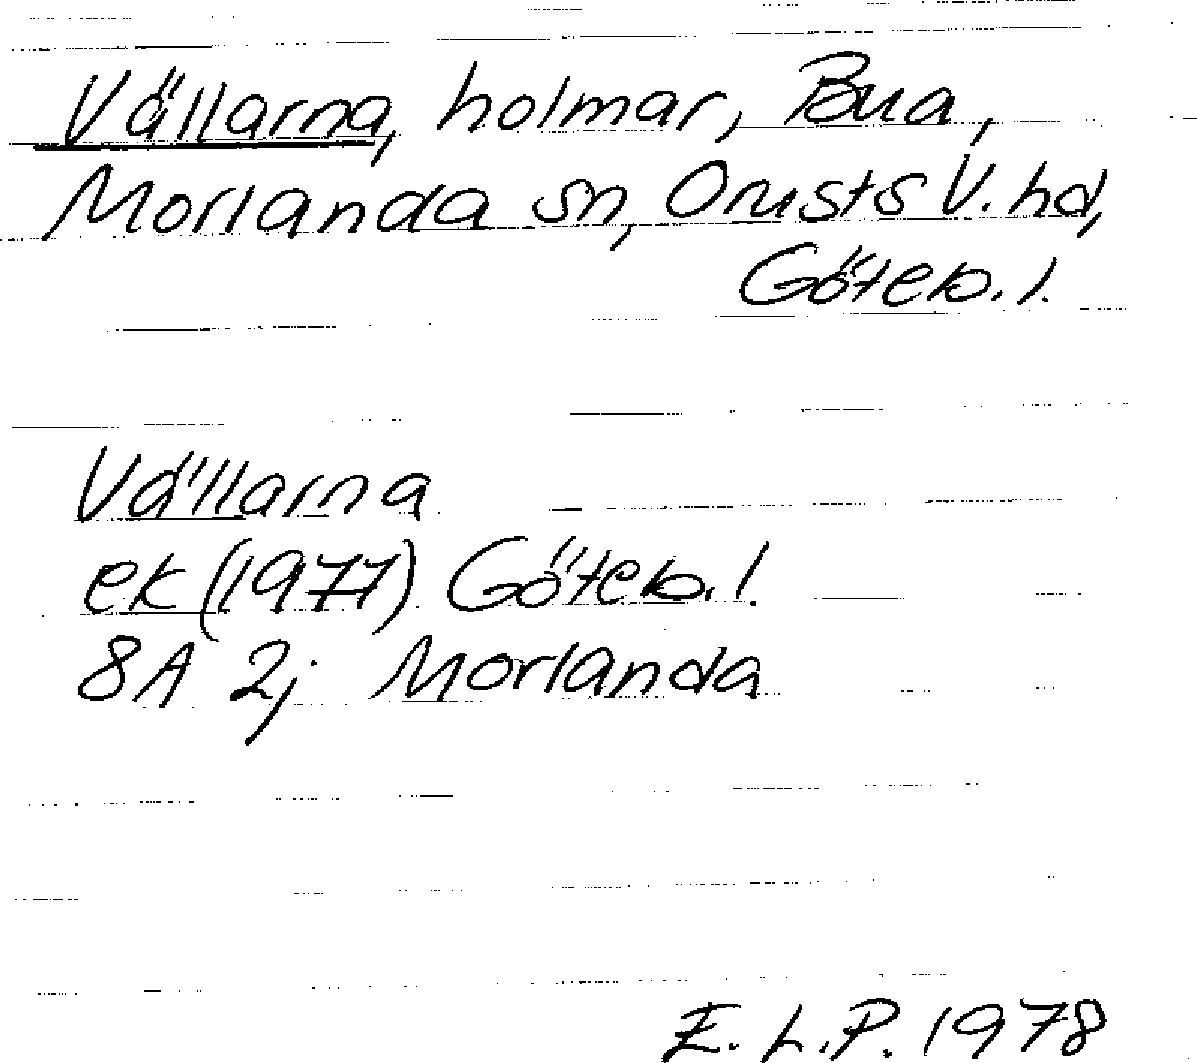 Vällarna, holmar, Bua,
Morlanda sn, Orusts V. hd,
Göteb. l.
Vällarna
ek (1977) Göteb. l.
8A 2j Morlanda
E. L. P. 1978